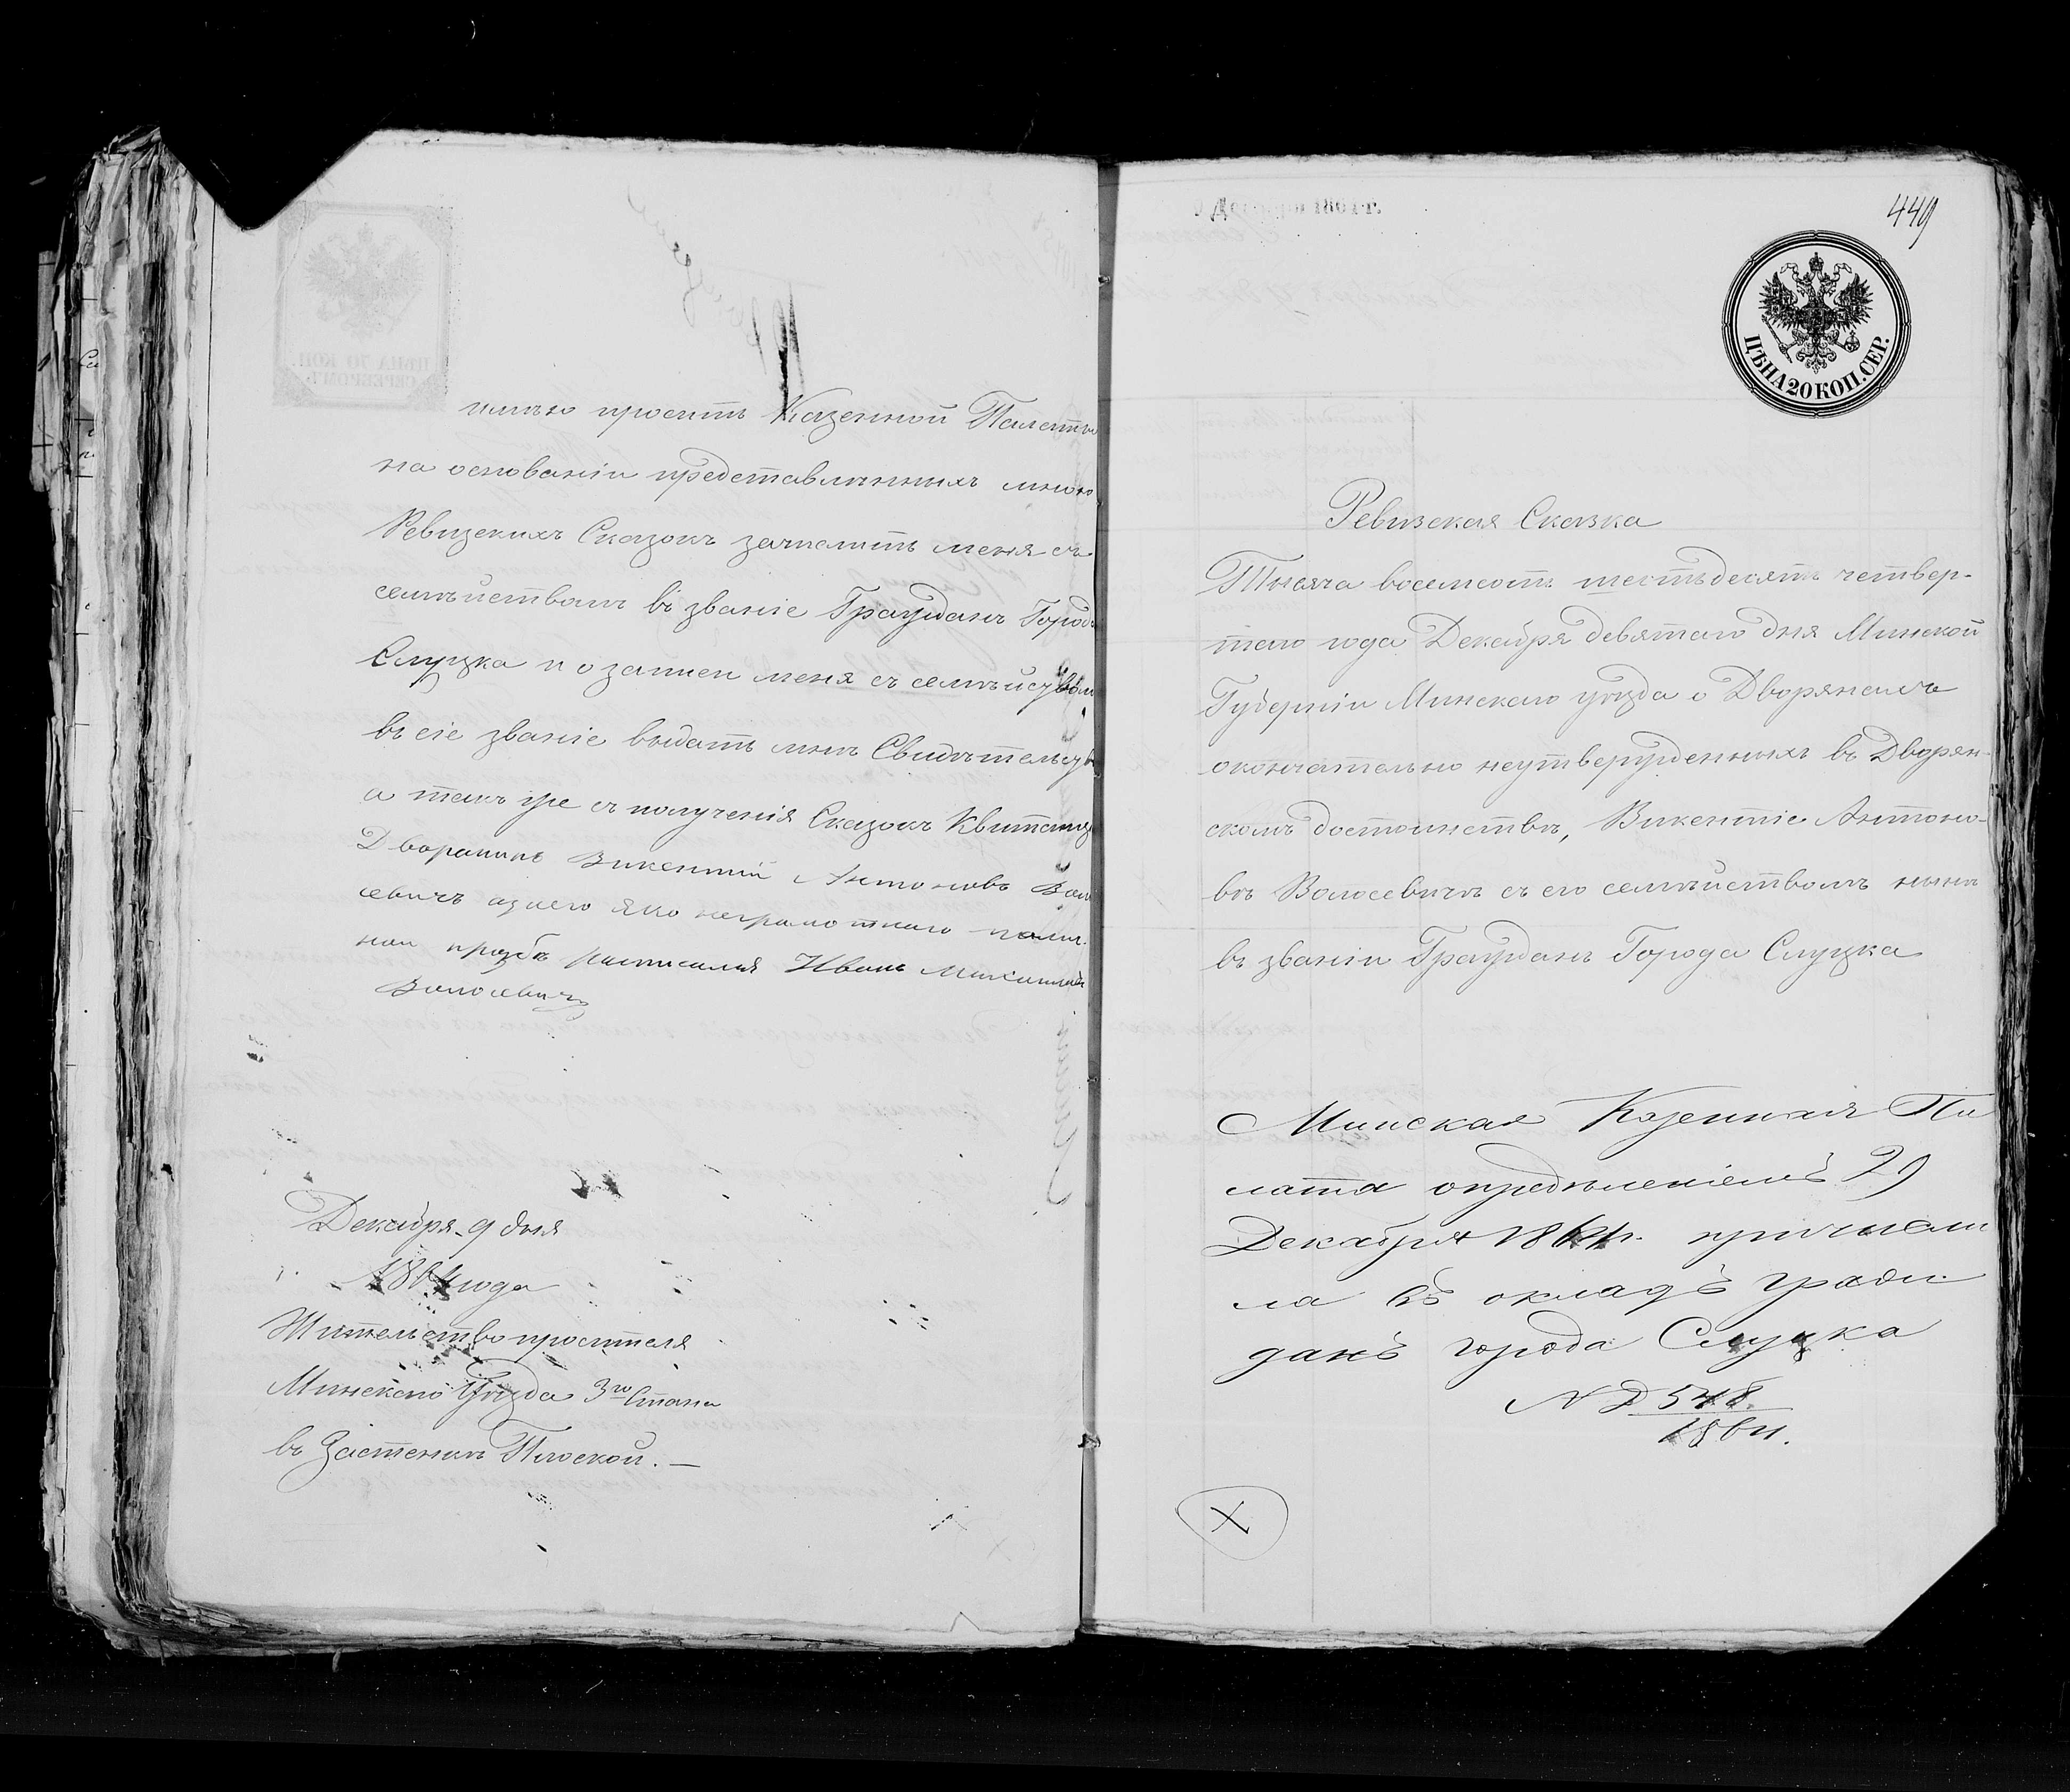 просить Казенной Палаты
на основаніи представленныхъ мною
Ревизскихъ Сказокъ зачислить меня съ
семѣйствомъ въ званіе Гражданъ Города
Слуцка и о записи меня съ семѣйством
въ сіе званіе выдать мнѣ Свидѣтельств
а такъ же съ полученія Сказокъ Квитанц
Дворянинъ Викентій Антоновъ Воло
севичъ а за него яко неграмотного
прозбѣ росписался Иванъ
Волосевичъ
Декабря 9 дня
1864 года
Жительство просителя
Минскаго Уѣзда 3го Стана
въ Застенкѣ Плоской. —
449
ЦѢНА 20 КОП. СЕР.
Ревизская Сказка
Тысяча восемсотъ шестьдесятъ четвер-
таго года Декабря девятаго дня Минской
Губерніи Минскаго уѣзда о Дворянехъ
окончательно неутвержденныхъ въ Дворян-
скомъ достоинствѣ, Викентіе Антоно-
вѣ Волосевичѣ съ его семѣйствомъ нынѣ
въ званіи Гражданъ Города Слуцка
Минская Казенная Па
лата опредѣленіемъ 29
Декабря 1864 г. причисли
ла въ окладъ граж
данъ города Слуцка
№ Д 548
1864.
X